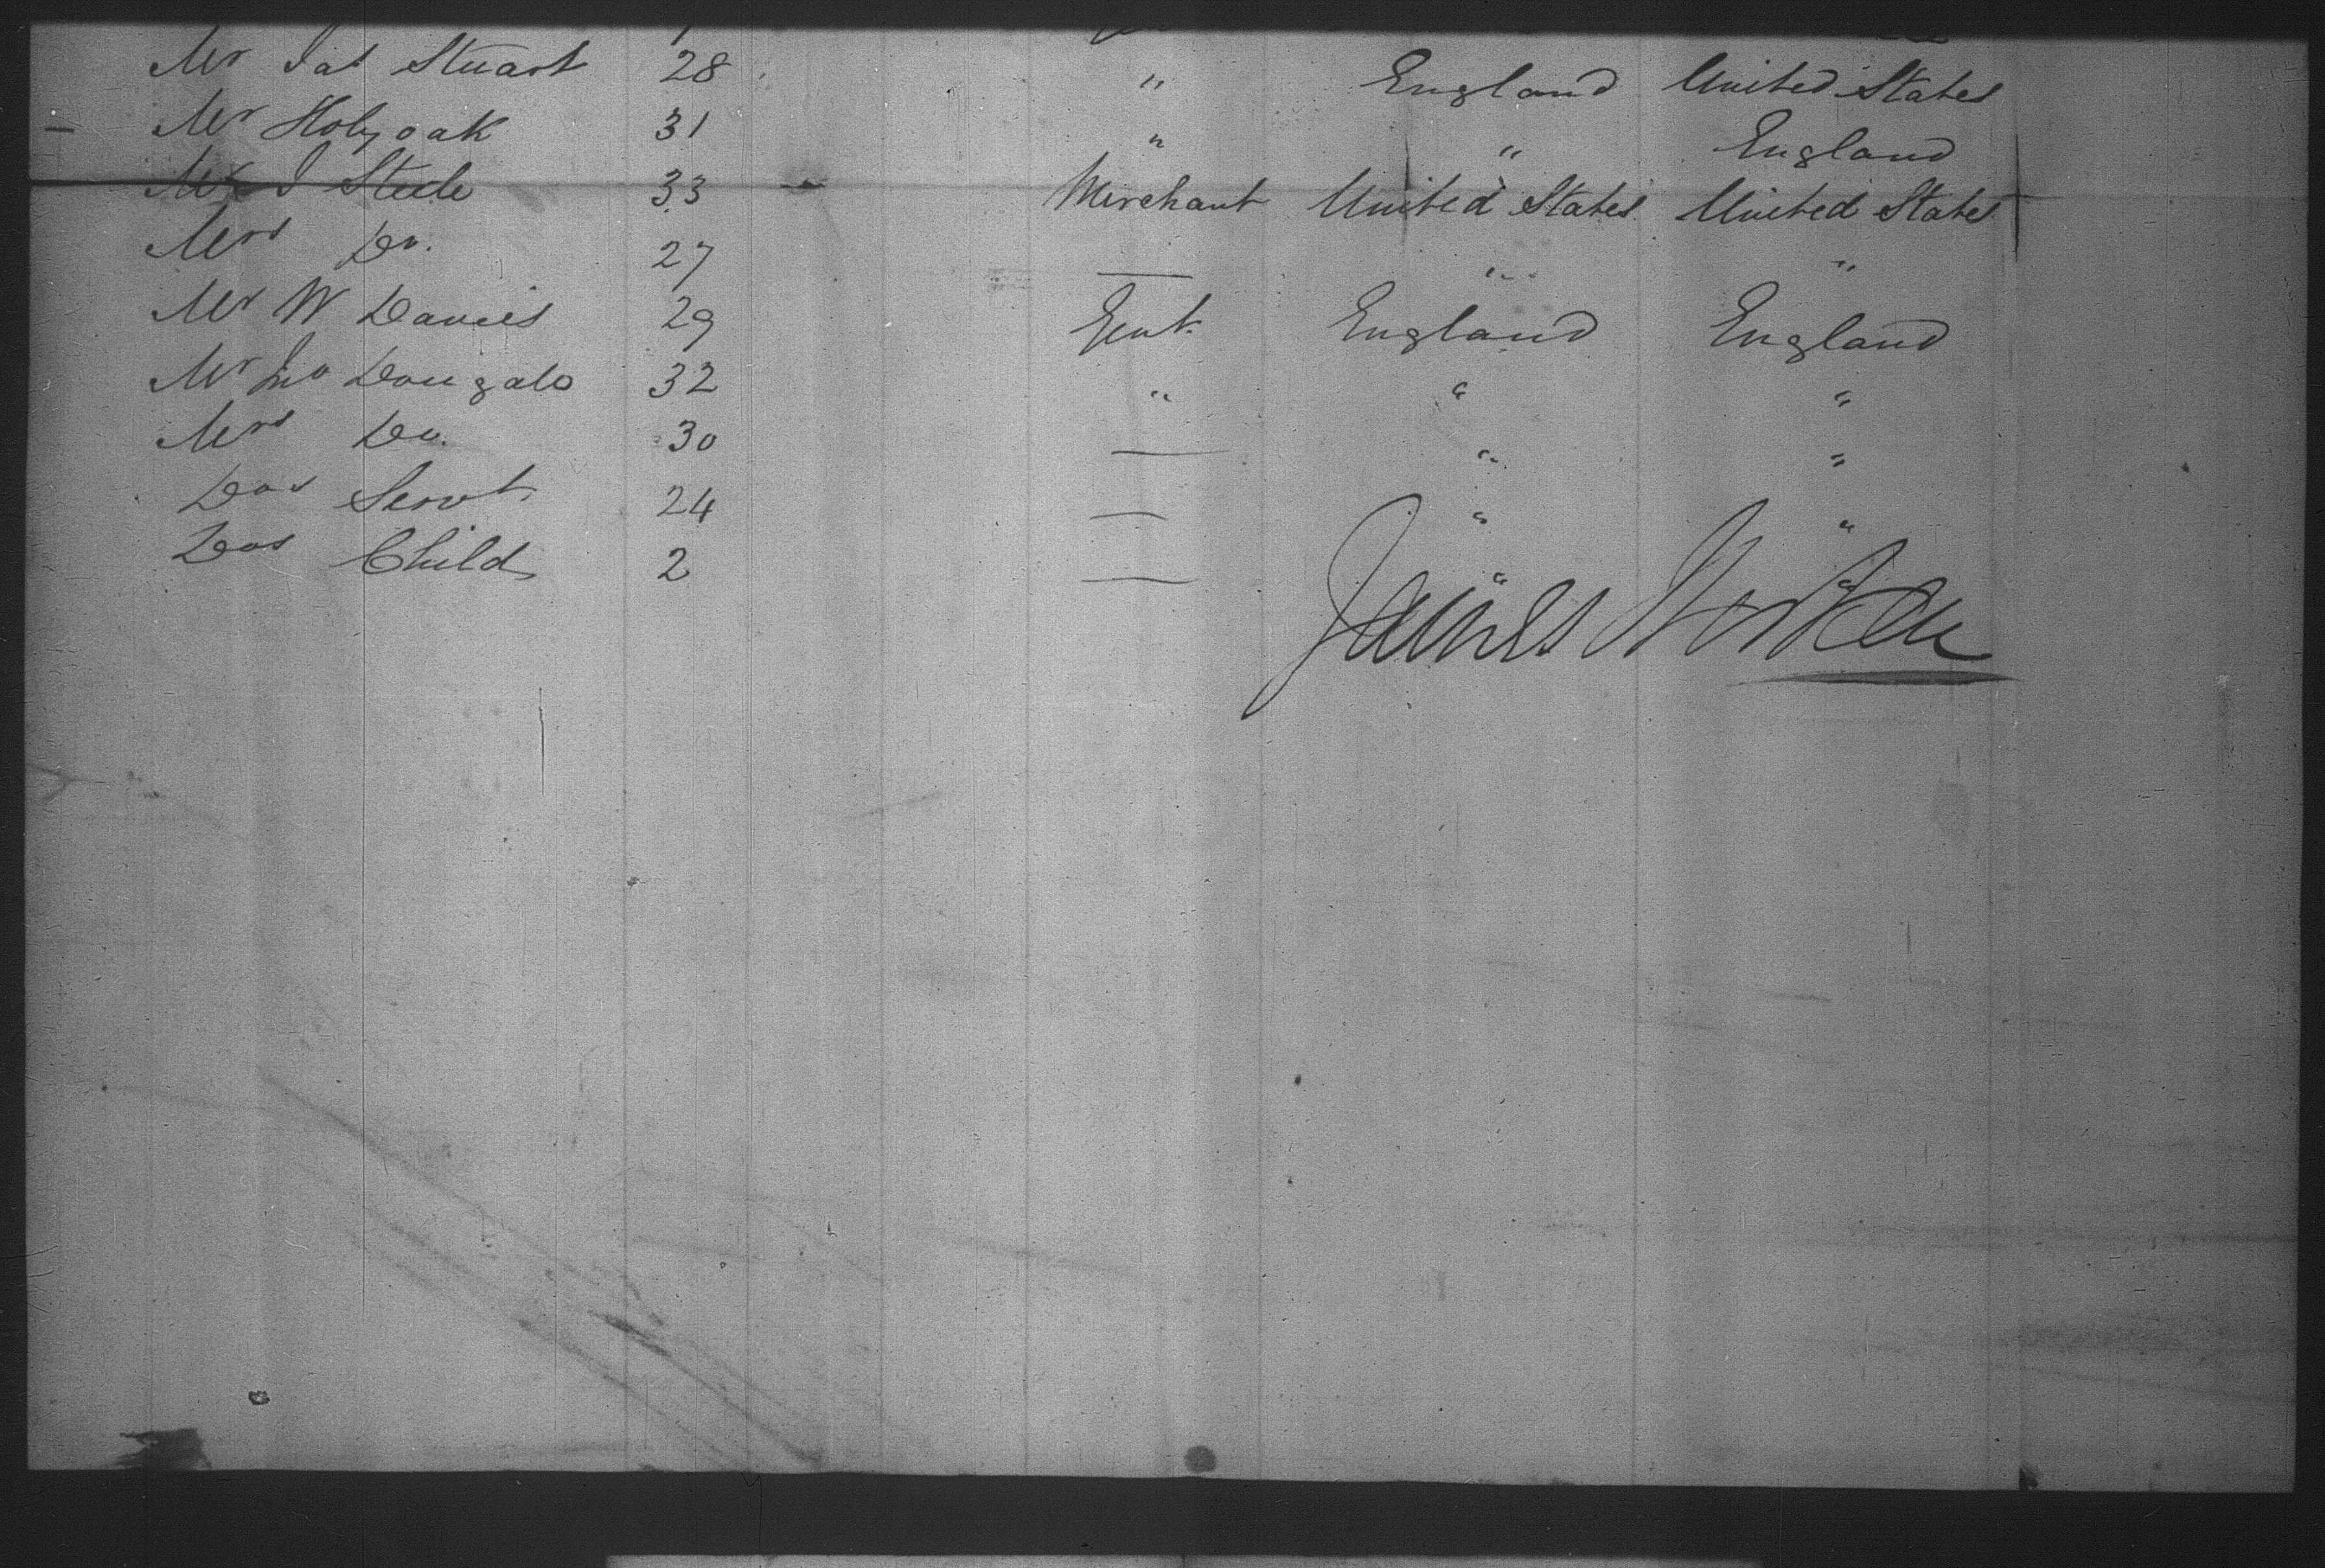 Mr Jas Stuart 28 " England United States
— Mr Holyoak 31 " " England
Mr J Steele 33 — Merchant United States United States
Mrs Do. 27 — " "
Mr W Davies 29 Gent England England
Mr Jno Dougald 32 " " "
Mrs Do. 30 — " "
Dos Servt 24 — " "
Dos Child 2 — " "
James